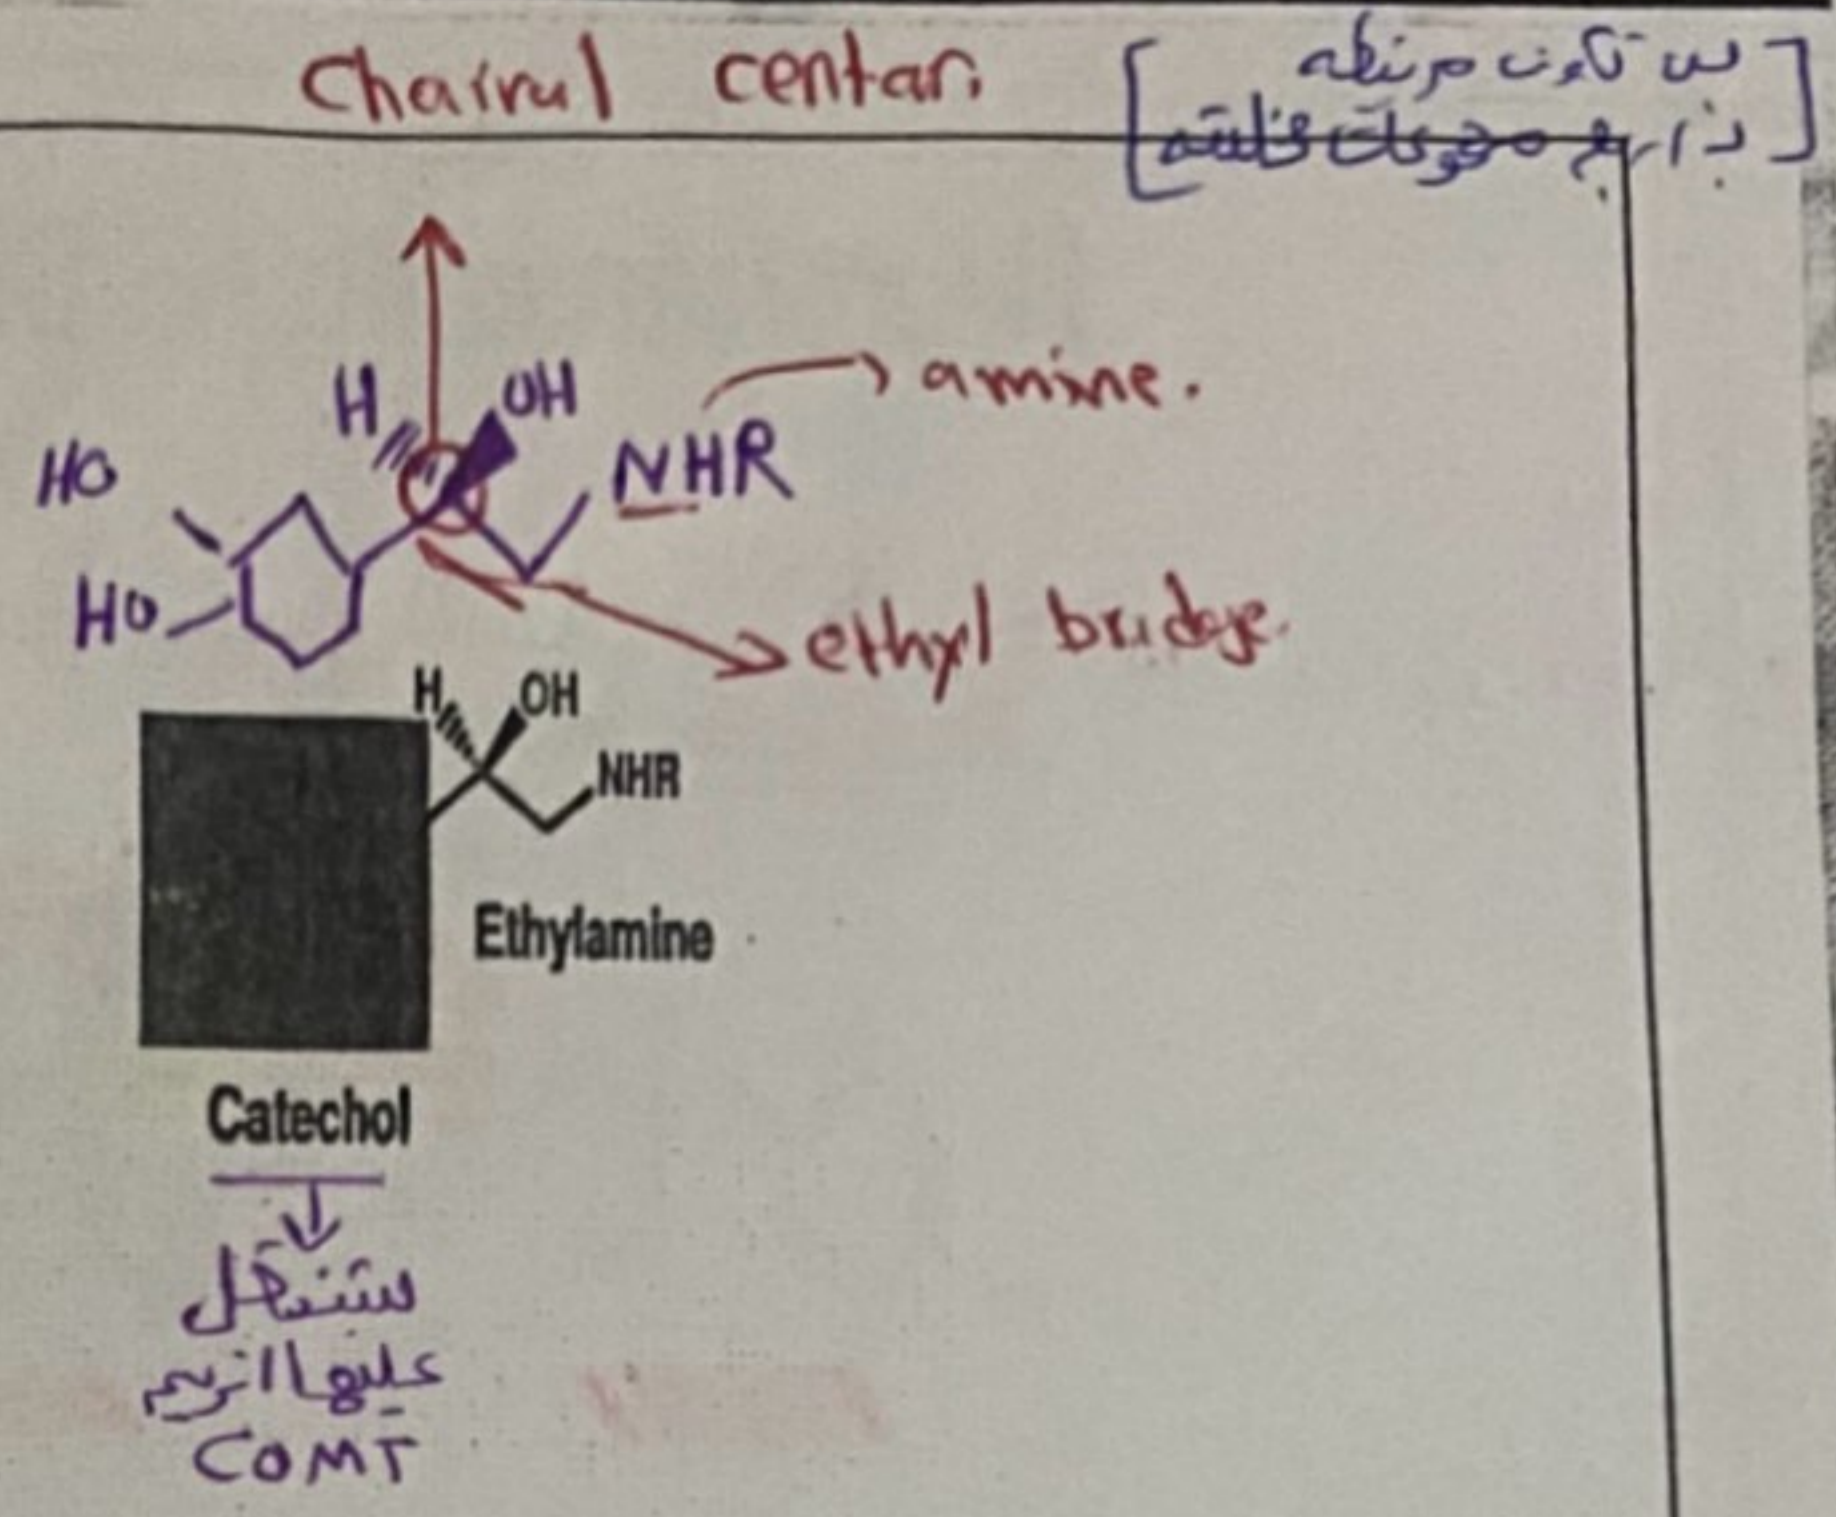 Chairul centar.
س تكون مرتبطه
بـ اربع مجموعات مختلفة
H
OH
amine.
HO
NHR
HO
ethyl bridge.
H
OH
NHR
Ethylamine
Catechol
ستشتغل
عليها انزيم
COMT